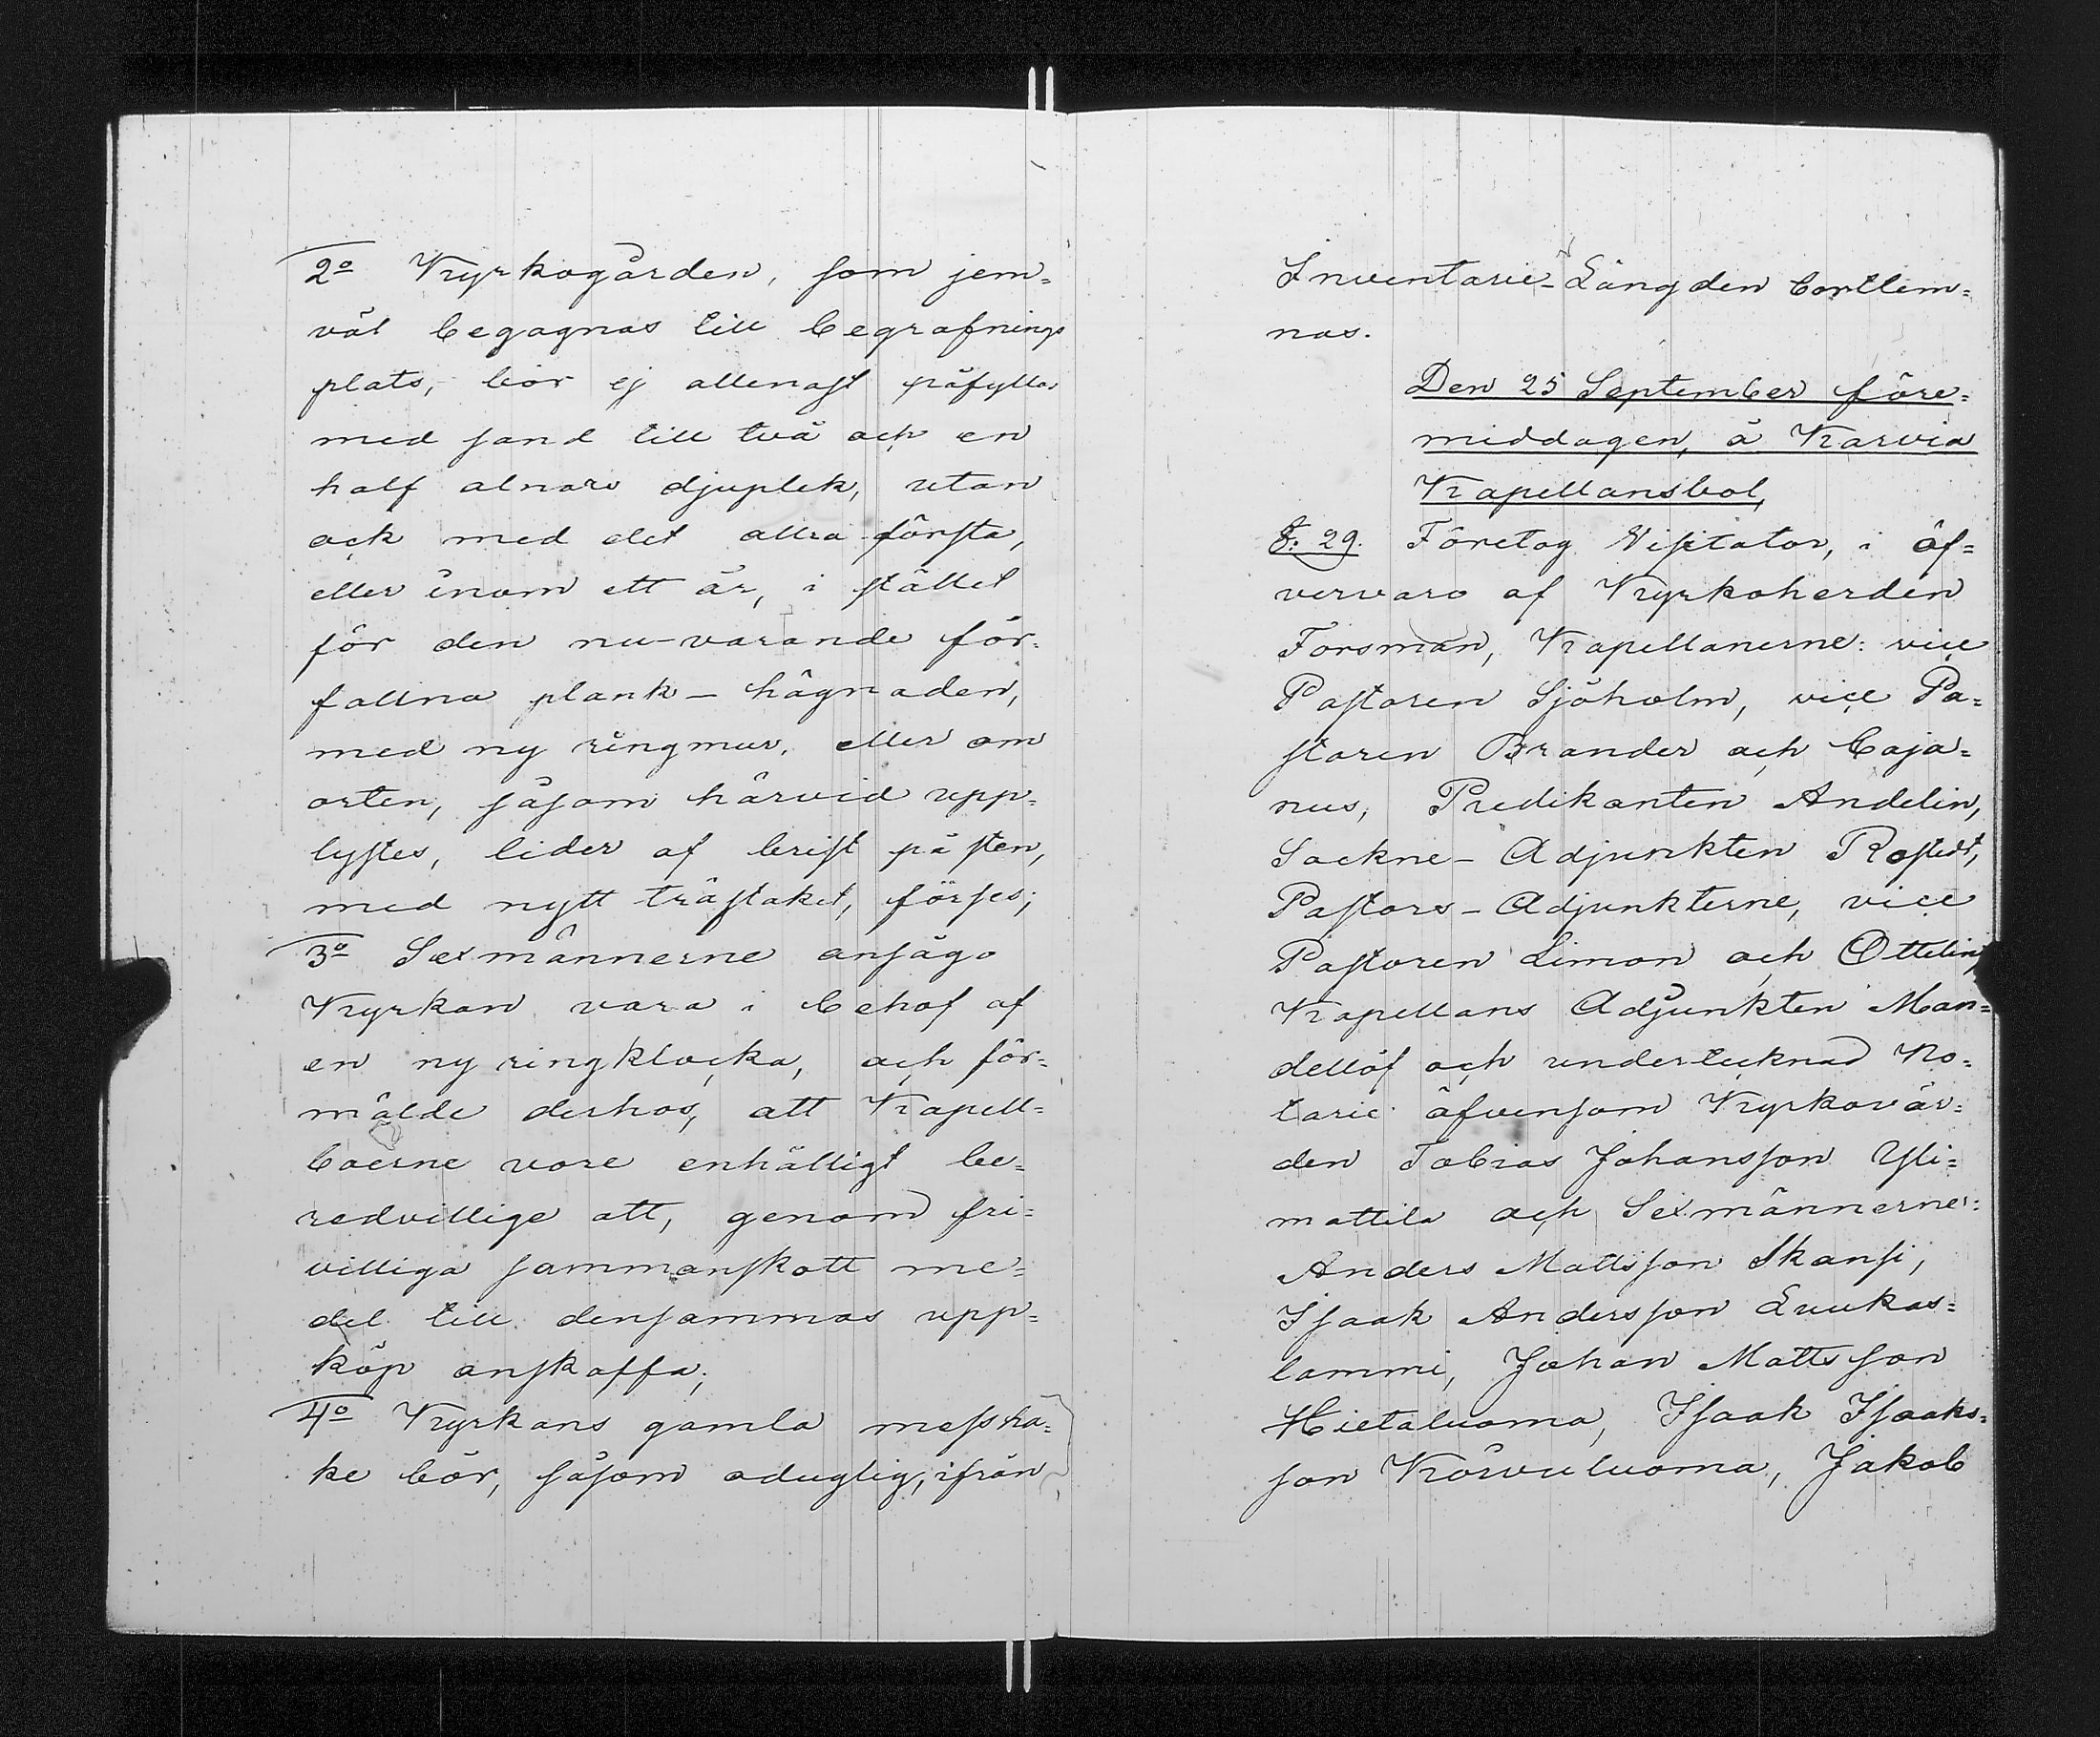 2o Kyrkogården, som jem=
väl begagnas till begrafnings
plats, bör ej allenast påfyllas
med sand till två och en
half alnars djuplek, utan
ock med det allra första,
eller inom ett år, i stället
för den nu-varande för=
fallna plank-hägnaden,
med ny ringmur, eller om
orten, såsom härvid upp=
lystes, lider af brist på sten,
med nytt trästaket, förses;
3o Sexmännerne ansågo
Kyrkan vara i behof af
en ny ringklocka, och för=
mälde derhos, att Kapell=
boerne vore enhälligt be=
redvillige att, genom fri=
villiga sammanskott me=
del till densammas upp=
köp anskaffa;
4o Kyrkans gamla messha=
ke bör, såsom oduglig, ifrån
Inventarie-Längden bortlem=
nas.
Den 25 September före=
middagen, å Karvia
Kapellansbol,
§. 29. Företog Visitator, i öf=
vervaro af Kyrkoherden
Forsman, Kapellanerne: vice
Pastoren Sjöholm, vice Pa=
storen Brander och Caja=
nus, Predikanten Andelin,
Sockne-Adjunkten Rostedt,
Pastors-Adjunkterne, vice
Pastoren Limon och Ottelin,
Kapellans Adjunkten Man=
dellöf och undertecknad No=
tarie äfvensom Kyrkovär=
den Tobias Johansson Yli=
mattila och Sexmännerne:
Anders Mattsson Skansi,
Isaak Andersson Luukas=
lammi, Johan Mattsson
Hietaluoma, Isaak Isaaks=
son Körvuluoma, Jakob